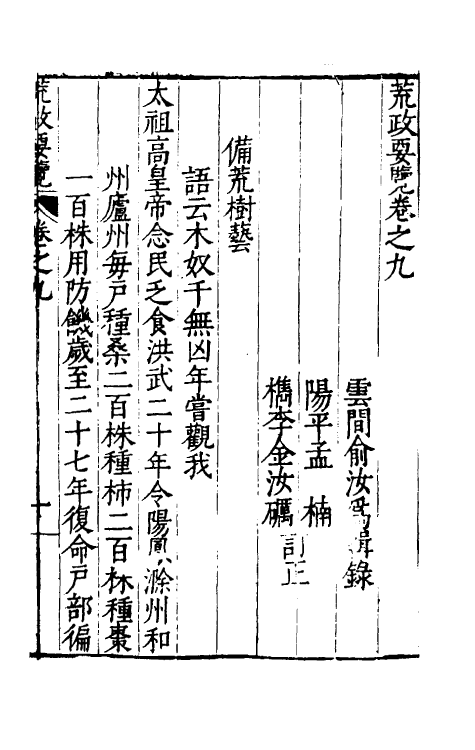 荒政要覽卷之九
雲間俞汝為輯錄
陽平孟楠
檇李金汝礪訂正
備荒樹藝
語云木奴千無凶年嘗觀我
太祖高皇帝念民乏食洪武二十年令陽鳳滁州和
州廬州每戶種桑二百株種柿二百株種棗
一百株用防饑歲至二十七年復命戶部徧
荒政要覽
卷之九
一